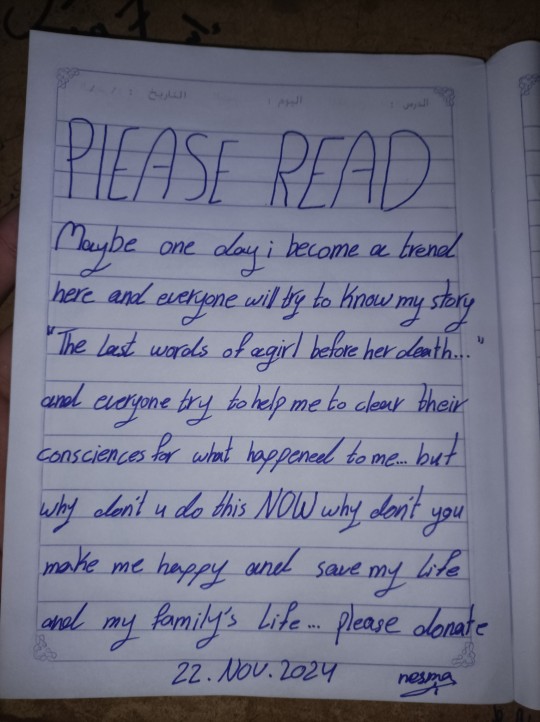 التاريخ :
اليوم :
الدرس :
PlEASE READ
Maybe one day i become a trend
here and everyone will try to know my story
"The last words of a girl before her death..."
and everyone try to help me to clear their
consciences for what happened to me... but
why don't u do this NOW why don't you
make me happy and save my life
and my family's life... please donate
22. NOV. 2024
nesma